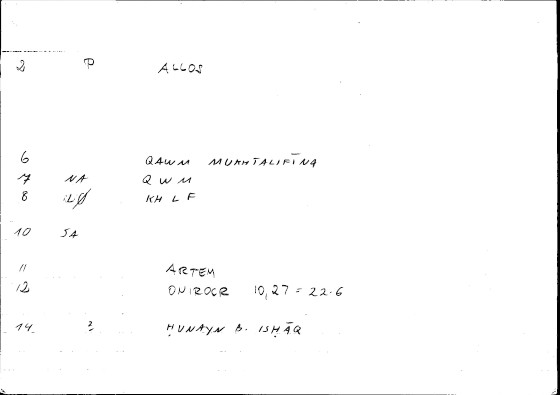 2 P ALLOS
6 QAWM MUKHTALIFĪNA
7 NA Q W M
8 ILØ KH L F
10 SA
11 ARTEM
12 ONIROCR 10,27 = 22.6
14 2 ḤUNAYN B. ISḤĀQ